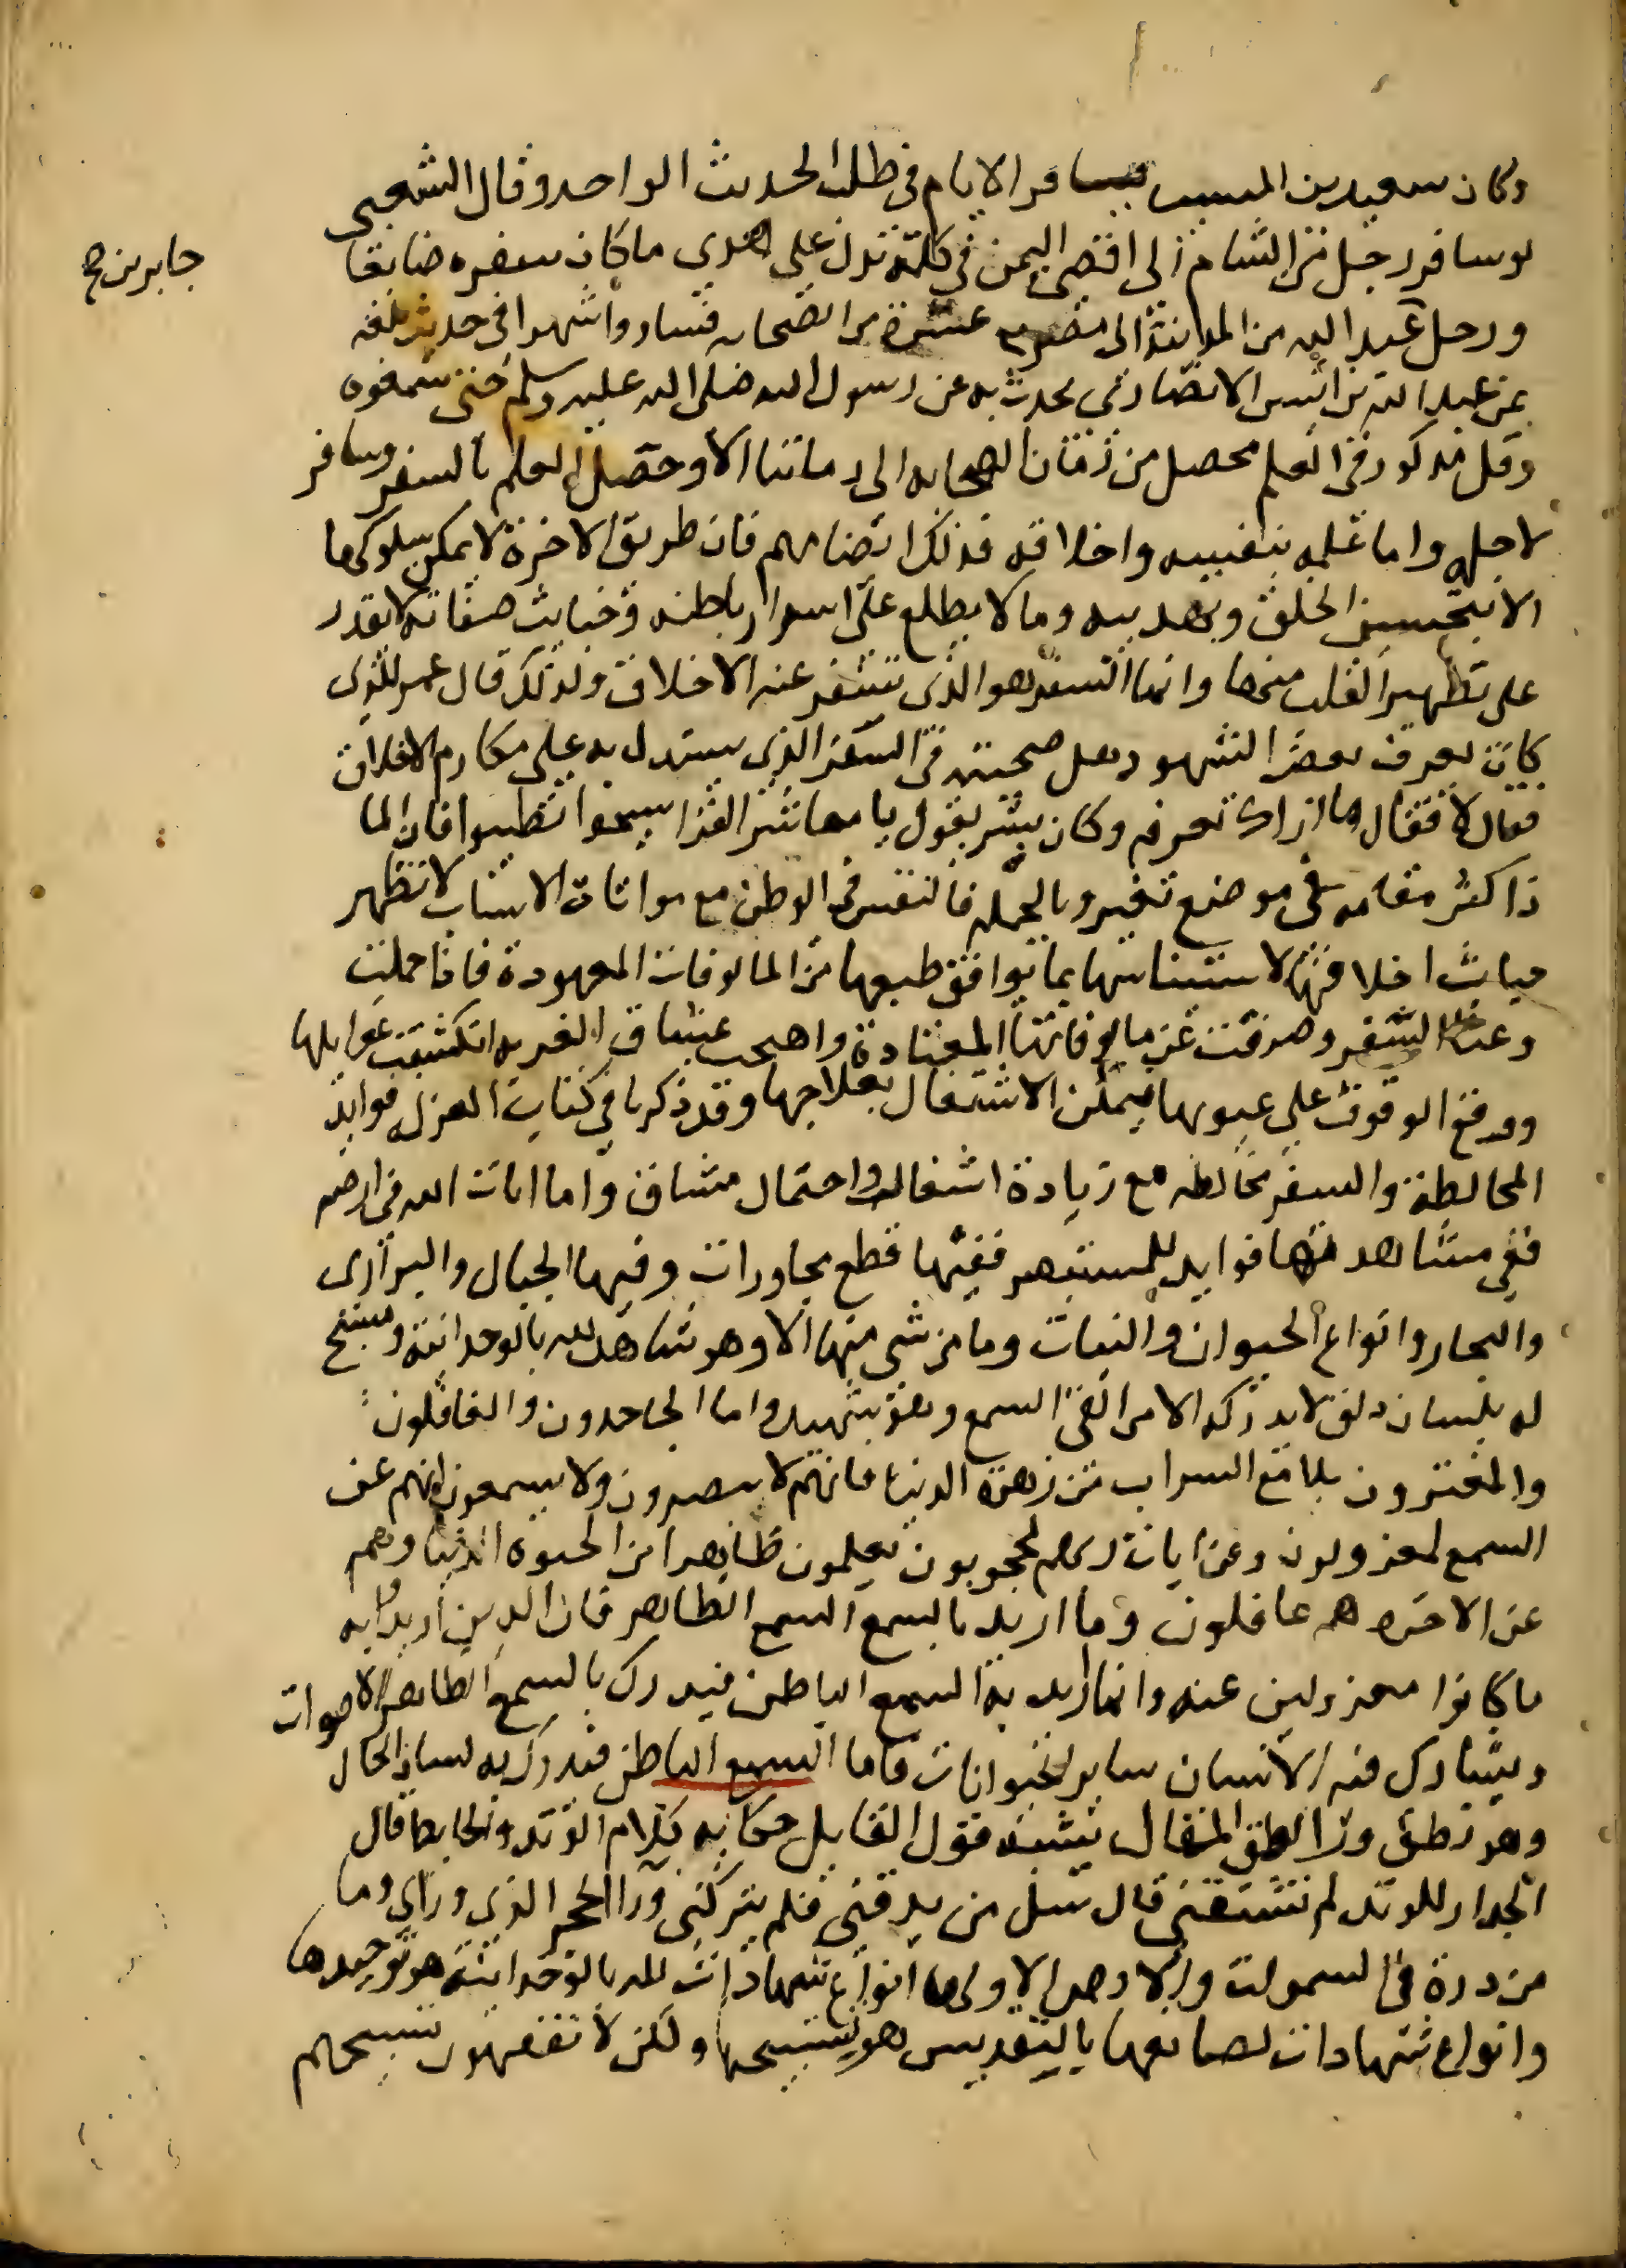 وكان سعيد بن المسيب يسافر الايام في طلب الحديث الواحد وقال الشعبي
لو سافر رجل من الشام الى اقصى اليمن في كلمة تدل على هدى ما كان سفره ضايعا
جابر بن ح
ورحل عبد الله من المدينة الى مصر مع عشرة من الصحابه فساروا شهرا في حديث بلغه
عن عبد الله بن انيس الانصاري يحدث به عن رسول الله صلى الله عليه وسلم حتى سمعوه
وقل مذكور في العلم محصل من زمان الصحابه الى زماننا الا وحصل العلم بالسفر وسافر
لاجله واما علمه بنفسه واخلاقه فذلك ايضا مهم فان طريق الاخرة لا يمكن سلوكها
الا بتحسين الخلق وتهذيبه وما لا يطلع على اسرار باطنه وخبايث صفاته لا يقدر
على تطهير القلب منها وانما السفر هو الذي يسفر عنه الاخلاق ولذلك قال عمر للذي
كان يعرف بعض الشهود هل صحبته في السفر الذي يستدل به على مكارم الاخلاق
فقال لا فقال ما اراك تعرفه وكان بشر يقول يا معاشر القرا سيحوا تطيبوا فان الما
ذا كثر مقامه في موضع تغير وبالجمله فالنفس في الوطن مع مواتاة الاسباب لا تظهر
خبايث اخلاقها لاستيناسها بما يوافق طبعها من المالوفات المعهودة فاذا حملت
وعثا السفر وصرفت عن مالوفاتها المعتادة وامتحنت بمشاق الغربه انكشفت غوايلها
ووقع الوقوف على عيوبها فيمكن الاشتغال بعلاجها وقد ذكرنا في كتاب العزله فوايد
المخالطة والسفر مخالطه مع زيادة اشغال واحتمال مشاق واما ايات الله في ارضه
ففي مشاهدتها فوايد للمستبصر ففيها قطع متجاورات وفيها الجبال والبراري
والبحار وانواع الحيوان والنبات وما من شي منها الا وهو شاهد لله بالوحدانية ومسبح
له بلسان ذلق لا يدركه الا من القى السمع وهو شهيد واما الجاحدون والغافلون
والمغترون بلامع السراب من زهرة الدنيا فانهم لا يبصرون ولا يسمعون لانهم عن
السمع لمعزولون وعن ايات ربهم لمحجوبون يعلمون ظاهرا من الحيوه الدنيا وهم
عن الاخره هم غافلون وما اريد بالسمع السمع الظاهر فان الذين اريدوا به
ما كانوا معزولين عنه وانما اريد به السمع الباطن فيدرك بالسمع الظاهر الاصوات
ويشارك فيه الانسان ساير الحيوانات فاما السمع الباطن فيدرك به لسان الحال
وهو نطق ورا نطق المقال يشبه قول القايل حكاية كلام الوتد والحايط قال
الجدار للوتد لم تشقني قال سل من يدقني فلم يتركني ورا الحجر الذي وراي وما
من ذرة في السموات والارض الا ولها انواع شهادات لله بالوحدانية هو توحيدها
وانواع شهادات لصانعها بالتقديس هو تسبيحها ولكن لا تفقهون تسبيحهم